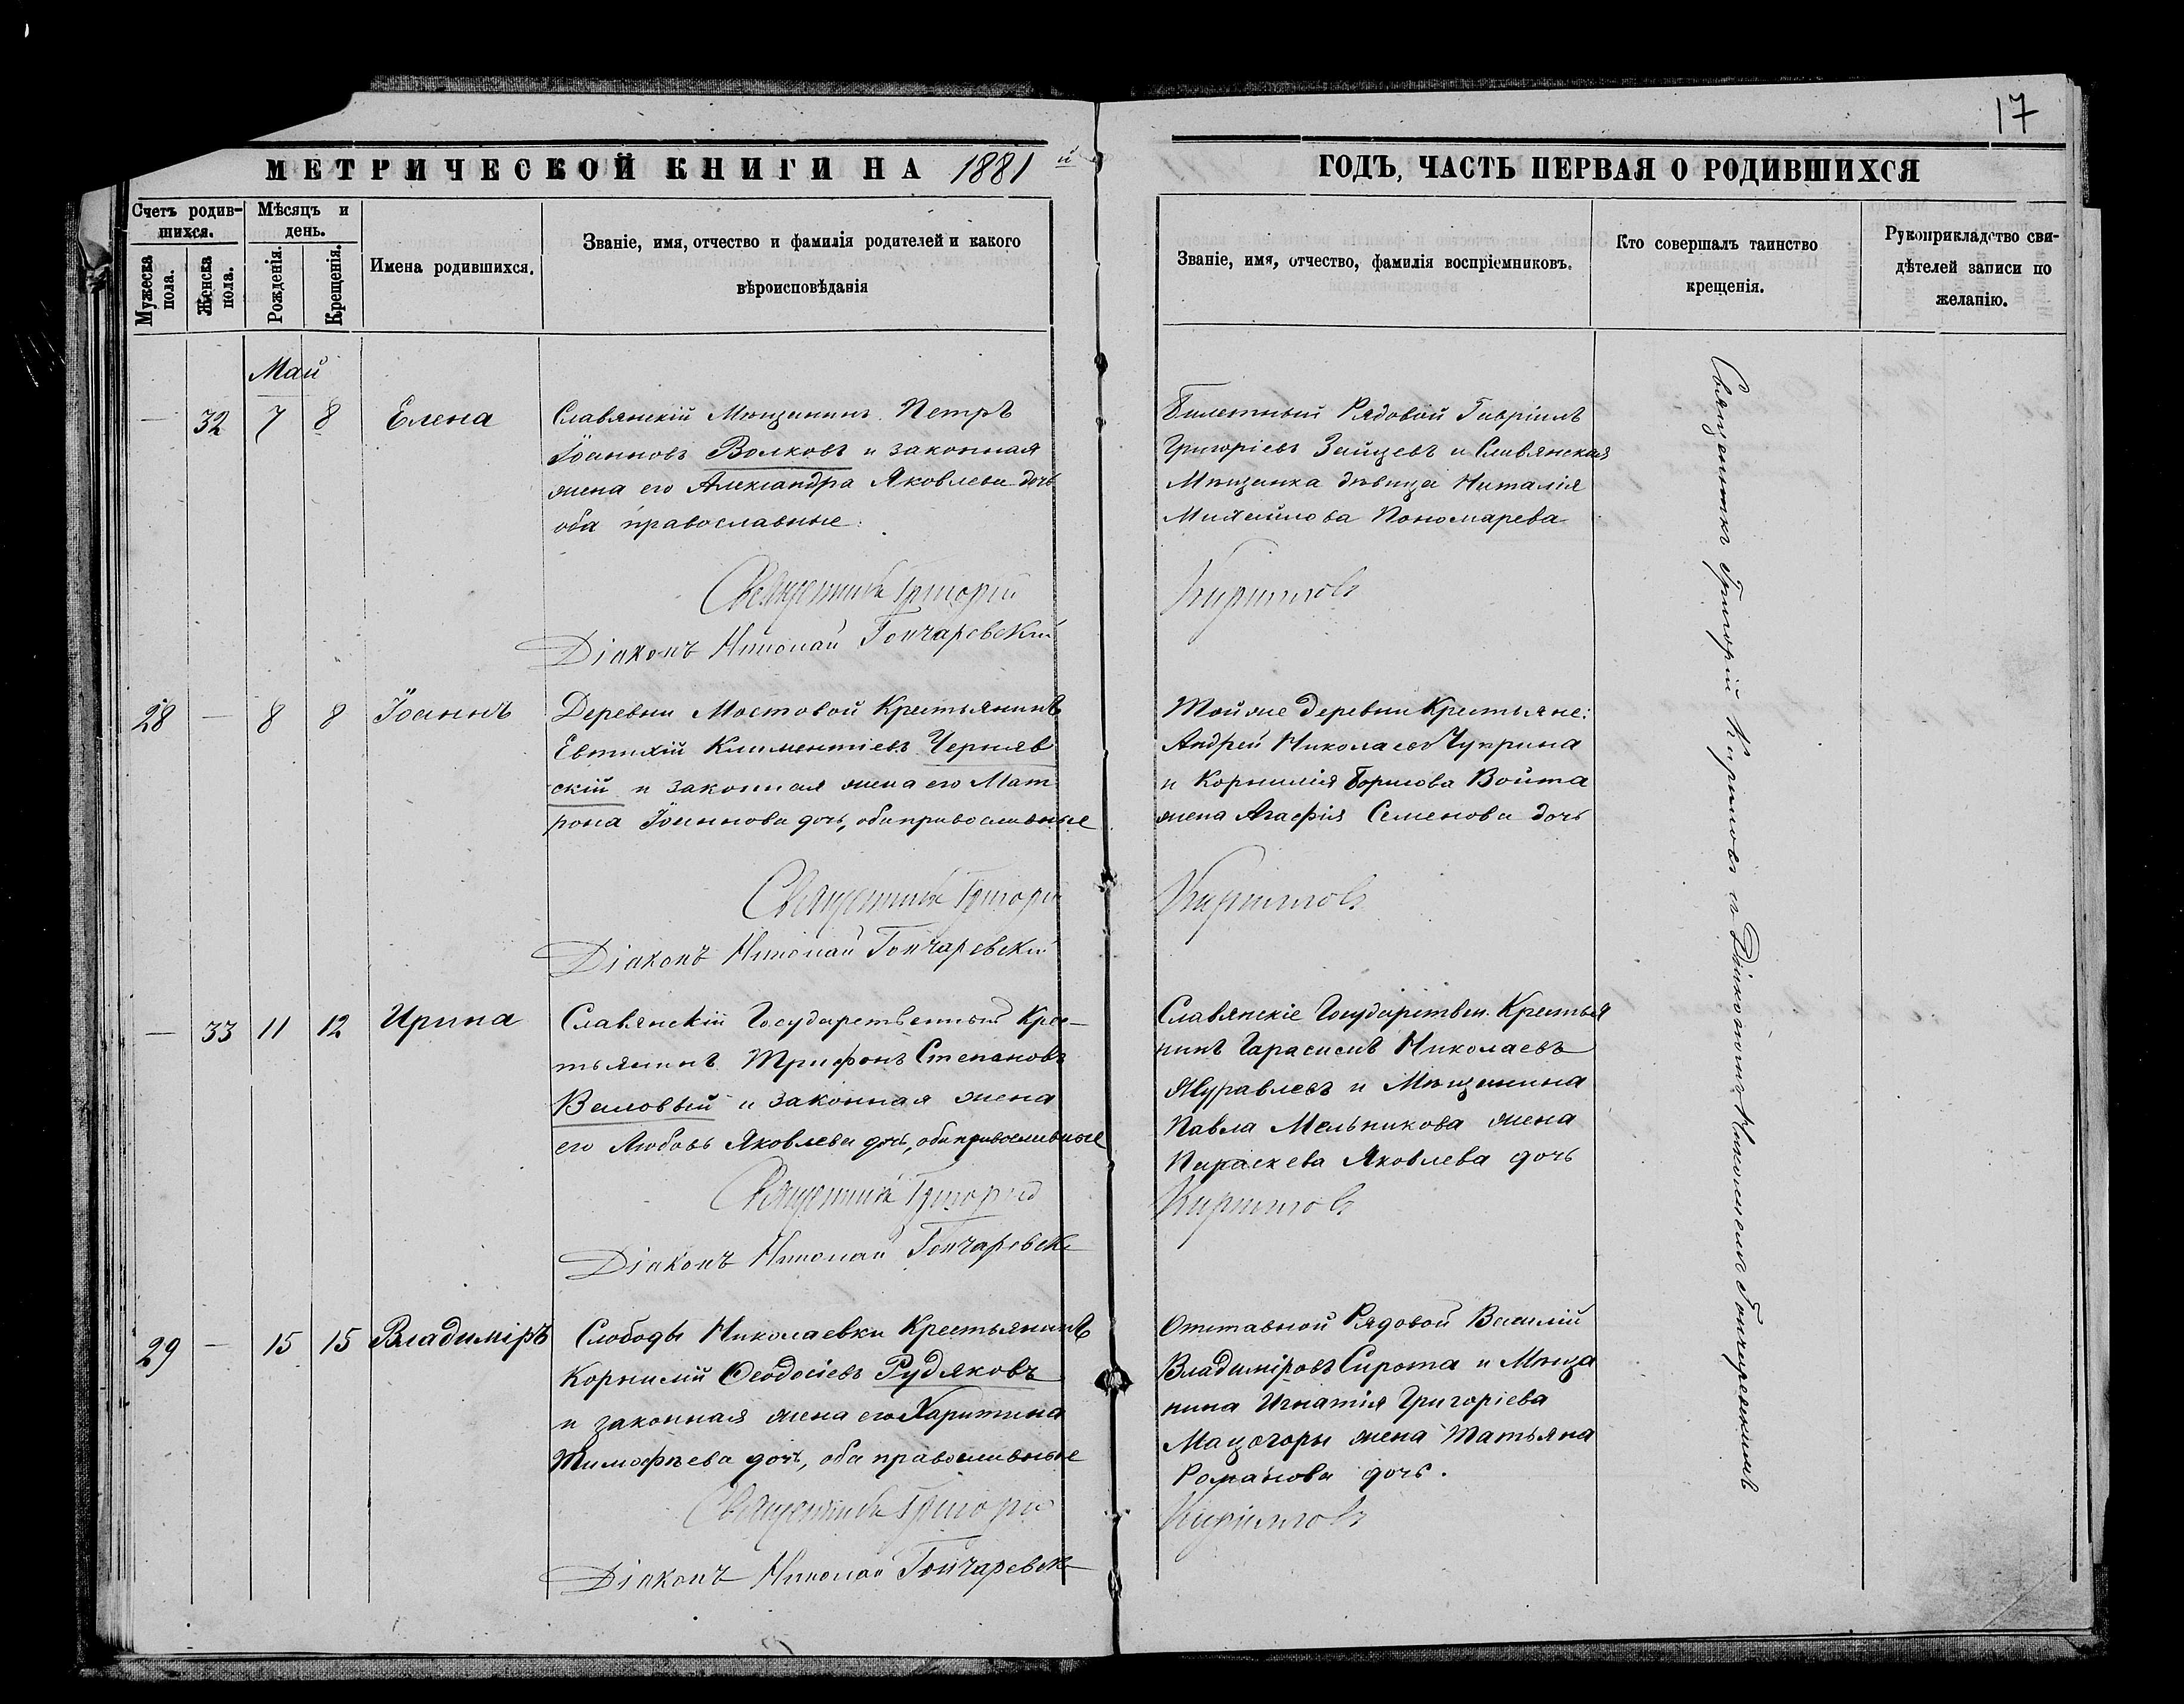 17
МЕТРИЧЕСКОЙ КНИГИ НА 1881 й
ГОДЪ, ЧАСТЬ ПЕРВАЯ О РОДИВШИХСЯ
Счетъ родив-
шихся.
Мужеска пола.
Женска пола.
Мѣсяцъ и
день.
Рожденія.
Крещенія.
Имена родившихся.
Званіе, имя, отчество и фамилія родителей и какого
вѣроисповѣданія
Званіе, имя, отчество, фамилія воспріемниковъ.
Кто совершалъ таинство
крещенія.
Рукоприкладство сви-
дѣтелей записи по
желанію.
Май
— 32 7 8 Елена
Славянскій Мѣщанинъ Петръ
Іоанновъ Волковъ и законная
жена его Александра Яковлева дочь
оба православные.
Билетный Рядовой Гавріилъ
Григоріевъ Зайцевъ и Славянская
Мѣщанка дѣвица Наталія
Михайлова Пономарева
Священникъ Григорій Кирилловъ
Діаконъ Николай Гончаревскій
28 — 8 8 Іоаннъ
Деревни Мостовой Крестьянинъ
Евтихій Климентіевъ Черняв
скій и законная жена его Мат
рона Іоаннова дочь, оба православные
Той же деревни Крестьяне:
Андрей Николаевъ Чуприна
и Корнилія Борисова Войта
жена Агафія Семенова дочь
Священникъ Григорій Кирилловъ
Діаконъ Николай Гончаревскій
— 33 11 12 Ирина
Славянскій Государственный Крес-
тьянинъ Трифонъ Степановъ
Валовый и законная жена
его Любовь Яковлева дочь, оба православные
Славянскіе Государствен. Крестья
нинъ Гарасимъ Николаевъ
Журавлевъ и Мѣщанина
Павла Мельникова жена
Параскева Яковлева дочь
Священникъ Григорій Кирилловъ
Діаконъ Николай Гончаревск
29 — 15 15 Владиміръ
Слободы Николаевки Крестьянинъ
Корнилій Ѳеодосіевъ Рудяковъ
и законная жена его Харитина
Тимофѣева дочь, оба православные
Отставной Рядовой Василій
Владиміровъ Сирота и Мѣща
нина Игнатія Григоріева
Мацогоры жена Татьяна
Романова дочь.
Священникъ Григорій Кирилловъ
Діаконъ Николай Гончаревск
Священникъ Григорій Кирилловъ съ Діакономъ Николаемъ Гончаревскимъ